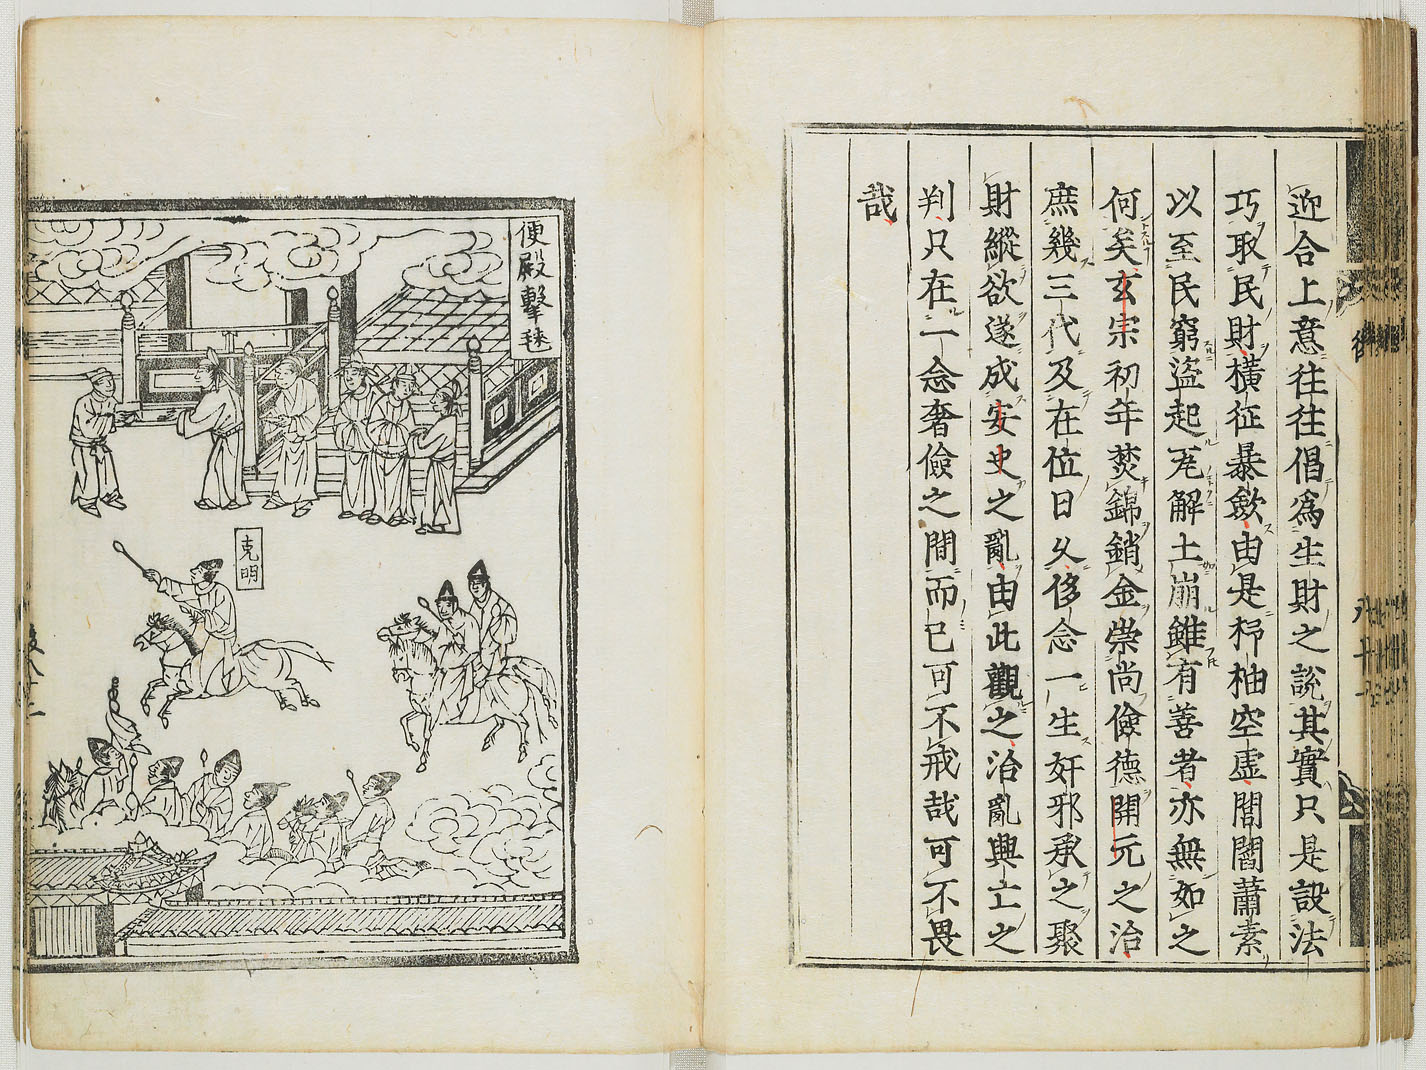 迎合上意往往倡爲生財之說其實只是設法
巧取民財橫征暴斂由是杼柚空虛閭閻蕭素
以至民窮盜起瓦解土崩雖有善者亦無如之
何矣玄宗初年焚錦銷金崇尚儉德開元之治
庶幾三代及在位日久侈念一生奸邪承之聚
財縱欲遂成安史之亂由此觀之治亂興亡之
判只在一念奢儉之間而已可不戒哉可不畏
哉
便殿擊毬
克明